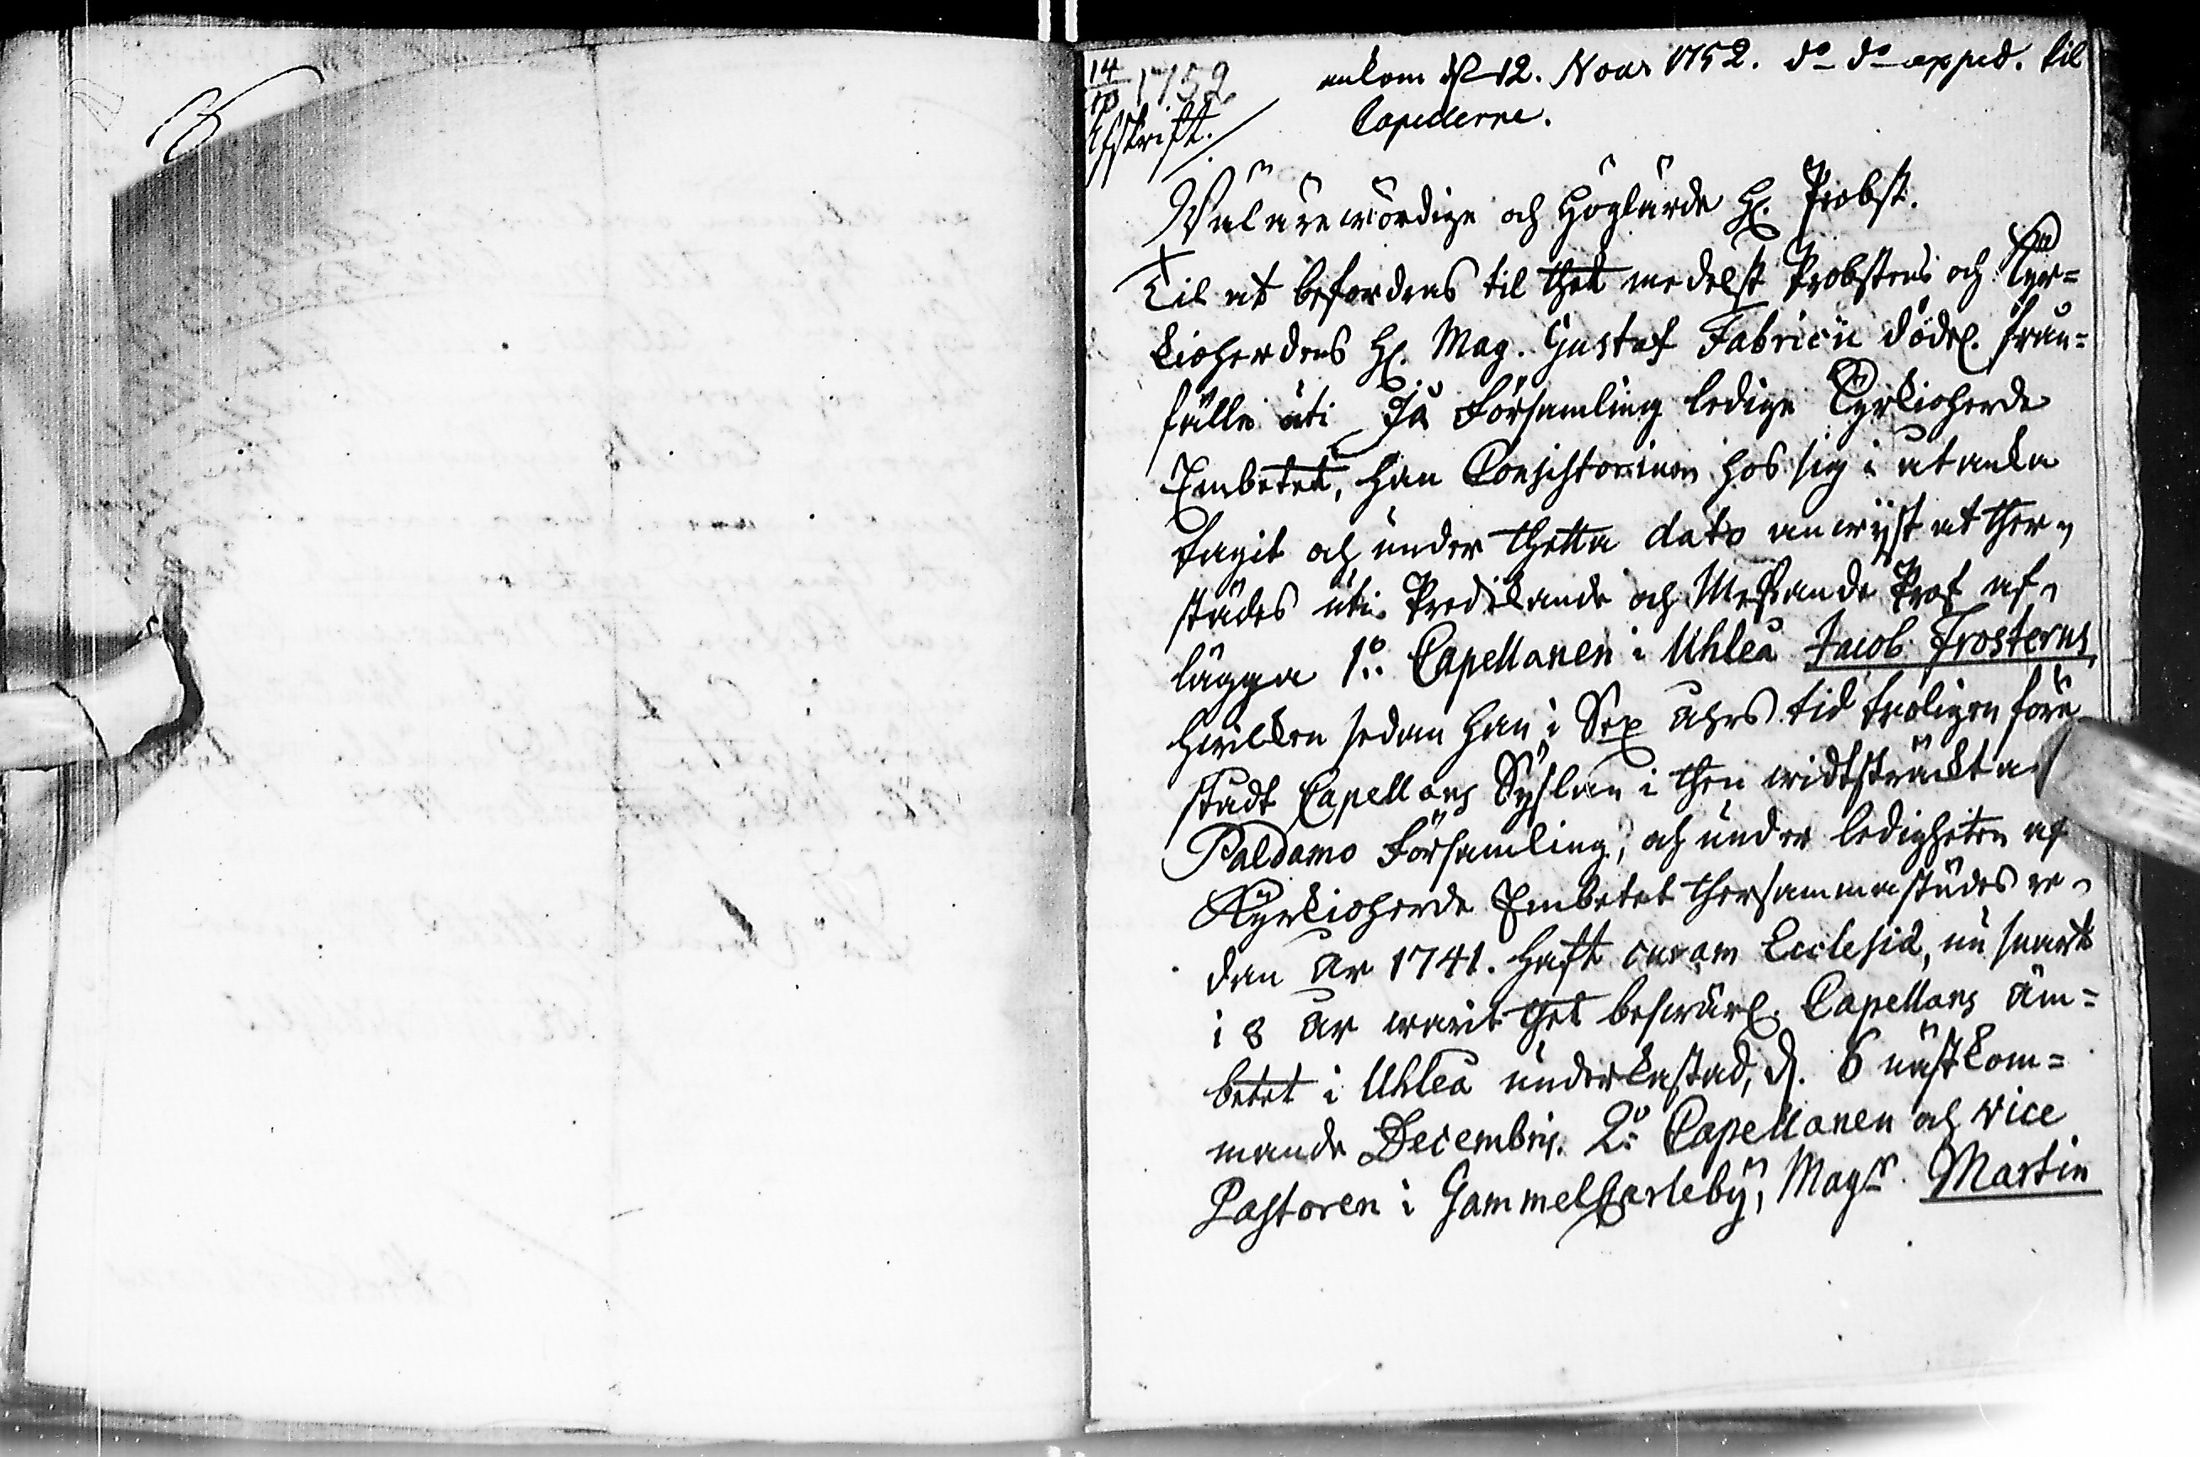 14/10 1752.
ankom d. 12. Novr 1752. do do exped. til
Afskrift.
Capellerne.
Wälärewördige och Höglärde H. Probst.
Til at befordras til thet medelst Probstens och Kyr=
kioherdens H. Mag. Gustaf Fabricii dödel. från=
fälle uti Ijå Församling ledige Kyrkioherde
Embetet, han Consistorium hos sig i åtanka
tagit och under thetta dato anwijst at ther
städes uti Predikande och Messande Prof af
lägga 1:o Capellanen i Uhleå Jacob Frosterus,
hwilken sedan han i Sex åhrs tid troligen före
stådt Capellans Syslan i then widtsträckta
Paldamo Församling, och under ledigheten af
Kyrkioherde Embetet thersammastädes re
dan år 1741. haft curam Ecclesiæ, nu snart
i 8 år warit thet beswärl. Capellans äm=
betet i Uhleå underkastad, d. 6 nästkom=
mande Decembris. 2:o Capellanen och Vice
Pastoren i Gammelkarleby, Magr. Martin